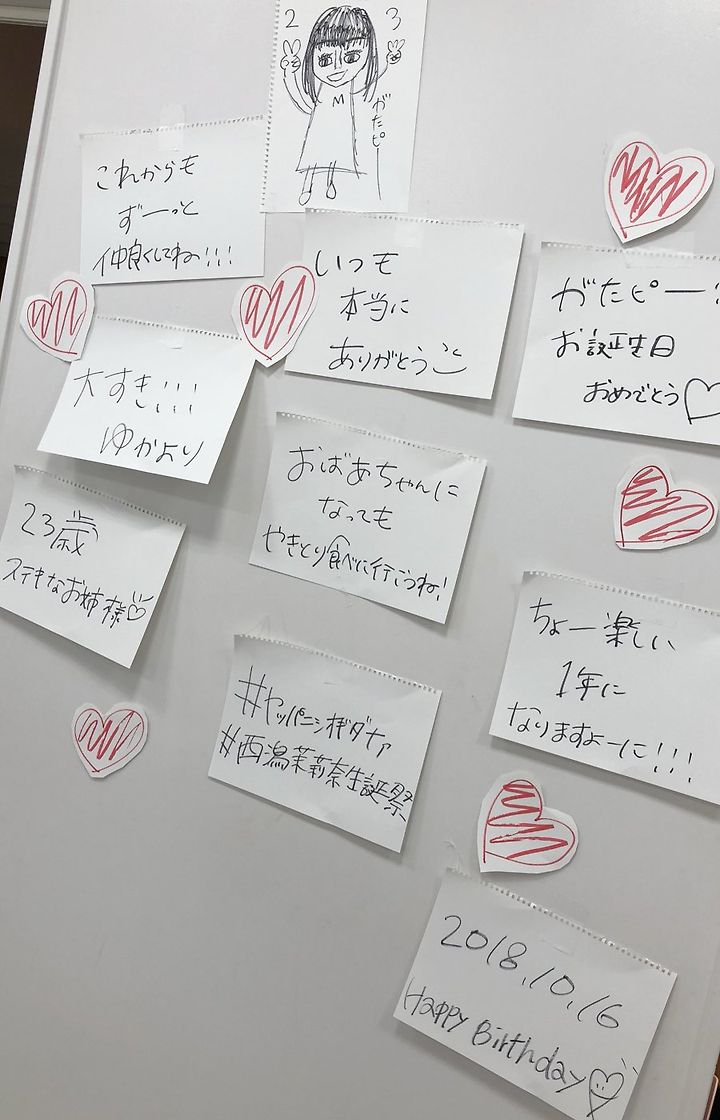 2 3
M
がたピー
これからも
ずーっと
仲良くしてね!!!
いつも
本当に
ありがとうこ
がたピー!
お誕生日
おめでとう♡
大すき!!!
ゆかより
おばあちゃんに
なっても
やきとり食べに行こうね!
23歳
ステキなお姉様♡
ちょー楽しい
1年に
なりますよーに!!!
#ヤッパニシガダナァ
#西潟茉莉奈生誕祭
2018.10.16
Happy Birthday♡